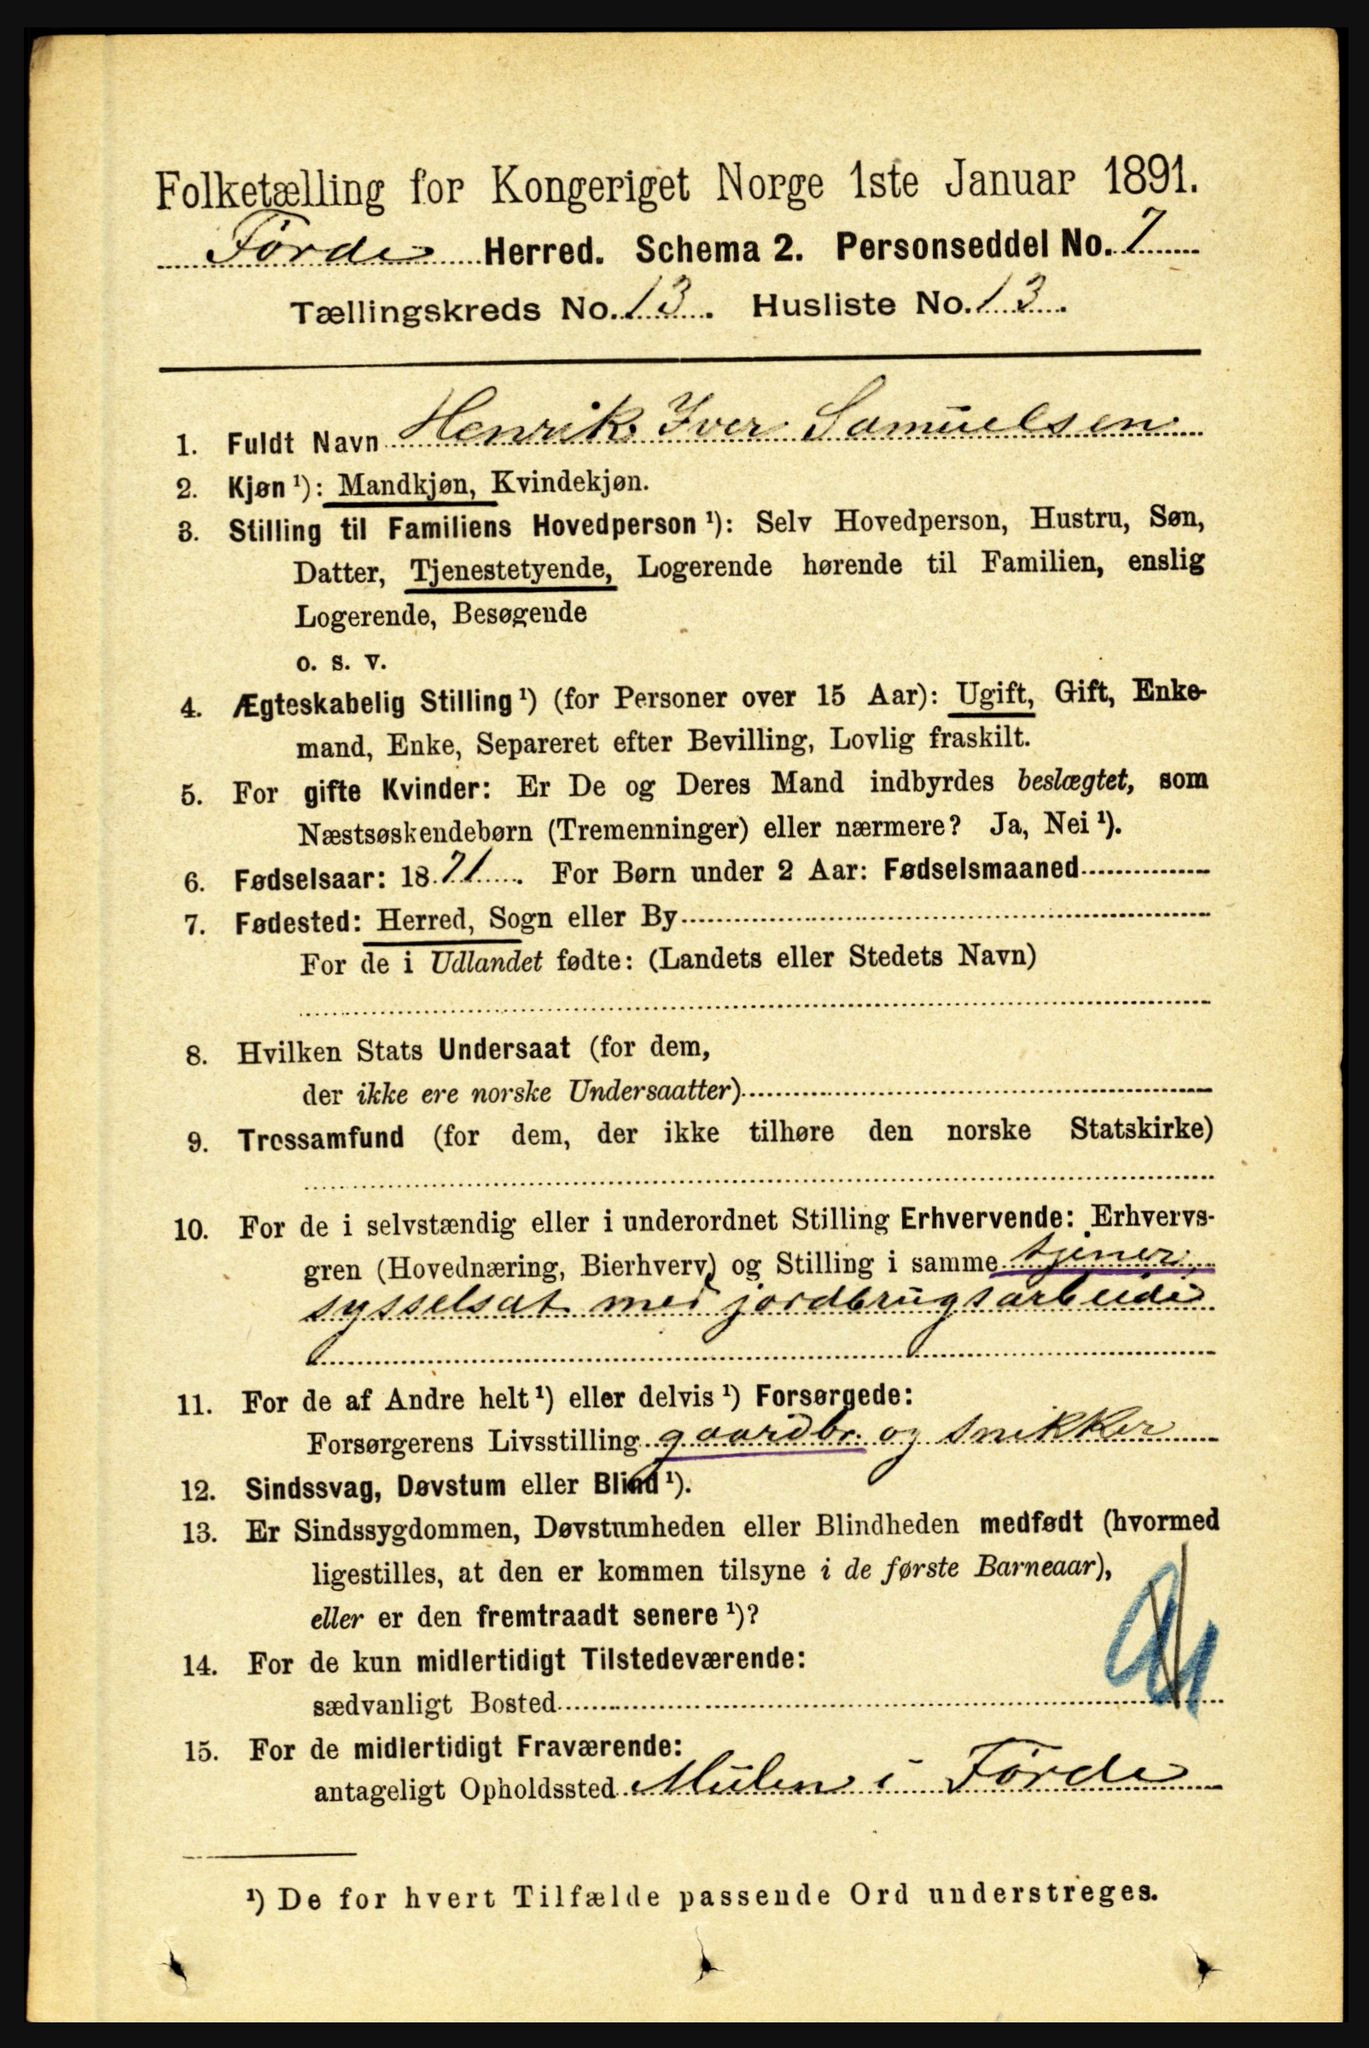 Folketælling for Kongeriget Norge 1ste Januar 1891.
Førde Herred. Schema 2. Personseddel No. 7
Tællingskreds No. 13. Husliste No. 13.
1. Fuldt Navn Henrik Iver Samuelsen
2. Kjøn ¹): Mandkjøn, Kvindekjøn.
3. Stilling til Familiens Hovedperson ¹): Selv Hovedperson, Hustru, Søn,
Datter, Tjenestetyende, Logerende hørende til Familien, enslig
Logerende, Besøgende
o. s. v.
4. Ægteskabelig Stilling ¹) (for Personer over 15 Aar): Ugift, Gift, Enke-
mand, Enke, Separeret efter Bevilling, Lovlig fraskilt.
5. For gifte Kvinder: Er De og Deres Mand indbyrdes beslægtet, som
Næstsøskendebørn (Tremenninger) eller nærmere? Ja, Nei ¹).
6. Fødselsaar: 1871. For Børn under 2 Aar: Fødselsmaaned
7. Fødested: Herred, Sogn eller By
For de i Udlandet fødte: (Landets eller Stedets Navn)
8. Hvilken Stats Undersaat (for dem,
der ikke ere norske Undersaatter)
9. Trossamfund (for dem, der ikke tilhøre den norske Statskirke)
10. For de i selvstændig eller i underordnet Stilling Erhvervende: Erhvervs-
gren (Hovednæring, Bierhverv) og Stilling i samme tjener,
sysselsat med jordbrugsarbeide
11. For de af Andre helt ¹) eller delvis ¹) Forsørgede:
Forsørgerens Livsstilling gaardbr. og snikker
12. Sindssvag, Døvstum eller Blind ¹).
13. Er Sindssygdommen, Døvstumheden eller Blindheden medfødt (hvormed
ligestilles, at den er kommen tilsyne i de første Barneaar),
eller er den fremtraadt senere ¹)?
14. For de kun midlertidigt Tilstedeværende:
sædvanligt Bosted
15. For de midlertidigt Fraværende:
antageligt Opholdssted Mulen i Førde
¹) De for hvert Tilfælde passende Ord understreges.